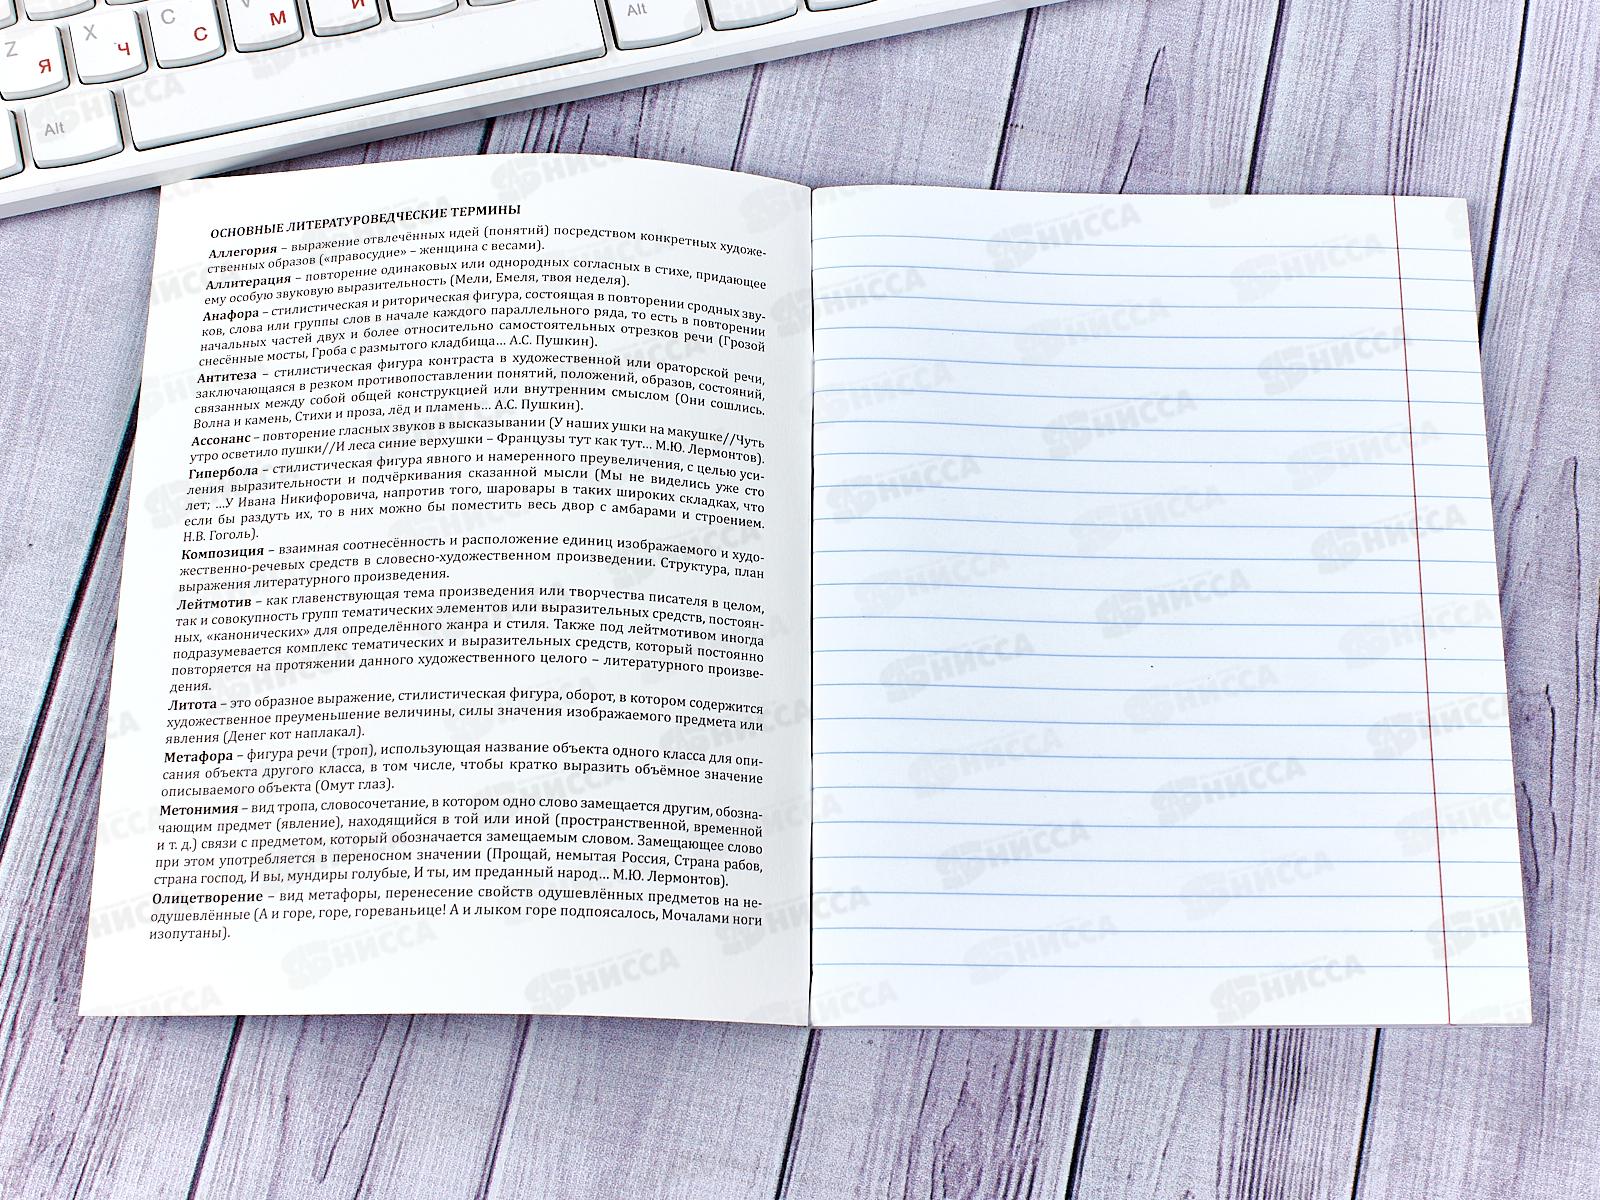 Z Я
X Ч
C С
V М
И
Alt
Alt
ОСНОВНЫЕ ЛИТЕРАТУРОВЕДЧЕСКИЕ ТЕРМИНЫ
Аллегория – выражение отвлечённых идей (понятий) посредством конкретных художе-
ственных образов («правосудие» – женщина с весами).
Аллитерация – повторение одинаковых или однородных согласных в стихе, придающее
ему особую звуковую выразительность (Мели, Емеля, твоя неделя).
Анафора – стилистическая и риторическая фигура, состоящая в повторении сродных зву-
ков, слова или группы слов в начале каждого параллельного ряда, то есть в повторении
начальных частей двух и более относительно самостоятельных отрезков речи (Грозой
снесённые мосты, Гроба с размытого кладбища... А.С. Пушкин).
Антитеза – стилистическая фигура контраста в художественной или ораторской речи,
заключающаяся в резком противопоставлении понятий, положений, образов, состояний,
связанных между собой общей конструкцией или внутренним смыслом (Они сошлись.
Волна и камень, Стихи и проза, лёд и пламень... А.С. Пушкин).
Ассонанс – повторение гласных звуков в высказывании (У наших ушки на макушке//Чуть
утро осветило пушки//И леса синие верхушки – Французы тут как тут... М.Ю. Лермонтов).
Гипербола – стилистическая фигура явного и намеренного преувеличения, с целью уси-
ления выразительности и подчёркивания сказанной мысли (Мы не виделись уже сто
лет; ...У Ивана Никифоровича, напротив того, шаровары в таких широких складках, что
если бы раздуть их, то в них можно бы поместить весь двор с амбарами и строением.
Н.В. Гоголь).
Композиция – взаимная соотнесённость и расположение единиц изображаемого и худо-
жественно-речевых средств в словесно-художественном произведении. Структура, план
выражения литературного произведения.
Лейтмотив – как главенствующая тема произведения или творчества писателя в целом,
так и совокупность групп тематических элементов или выразительных средств, постоян-
ных, «канонических» для определённого жанра и стиля. Также под лейтмотивом иногда
подразумевается комплекс тематических и выразительных средств, который постоянно
повторяется на протяжении данного художественного целого – литературного произве-
дения.
Литота – это образное выражение, стилистическая фигура, оборот, в котором содержится
художественное преуменьшение величины, силы значения изображаемого предмета или
явления (Денег кот наплакал).
Метафора – фигура речи (троп), использующая название объекта одного класса для опи-
сания объекта другого класса, в том числе, чтобы кратко выразить объёмное значение
описываемого объекта (Омут глаз).
Метонимия – вид тропа, словосочетание, в котором одно слово замещается другим, обозна-
чающим предмет (явление), находящийся в той или иной (пространственной, временной
и т. д.) связи с предметом, который обозначается замещаемым словом. Замещающее слово
при этом употребляется в переносном значении (Прощай, немытая Россия, Страна рабов,
страна господ, И вы, мундиры голубые, И ты, им преданный народ... М.Ю. Лермонтов).
Олицетворение – вид метафоры, перенесение свойств одушевлённых предметов на не-
одушевлённые (А и горе, горе, гореваньице! А и лыком горе подпоясалось, Мочалами ноги
изопутаны).
НИССА